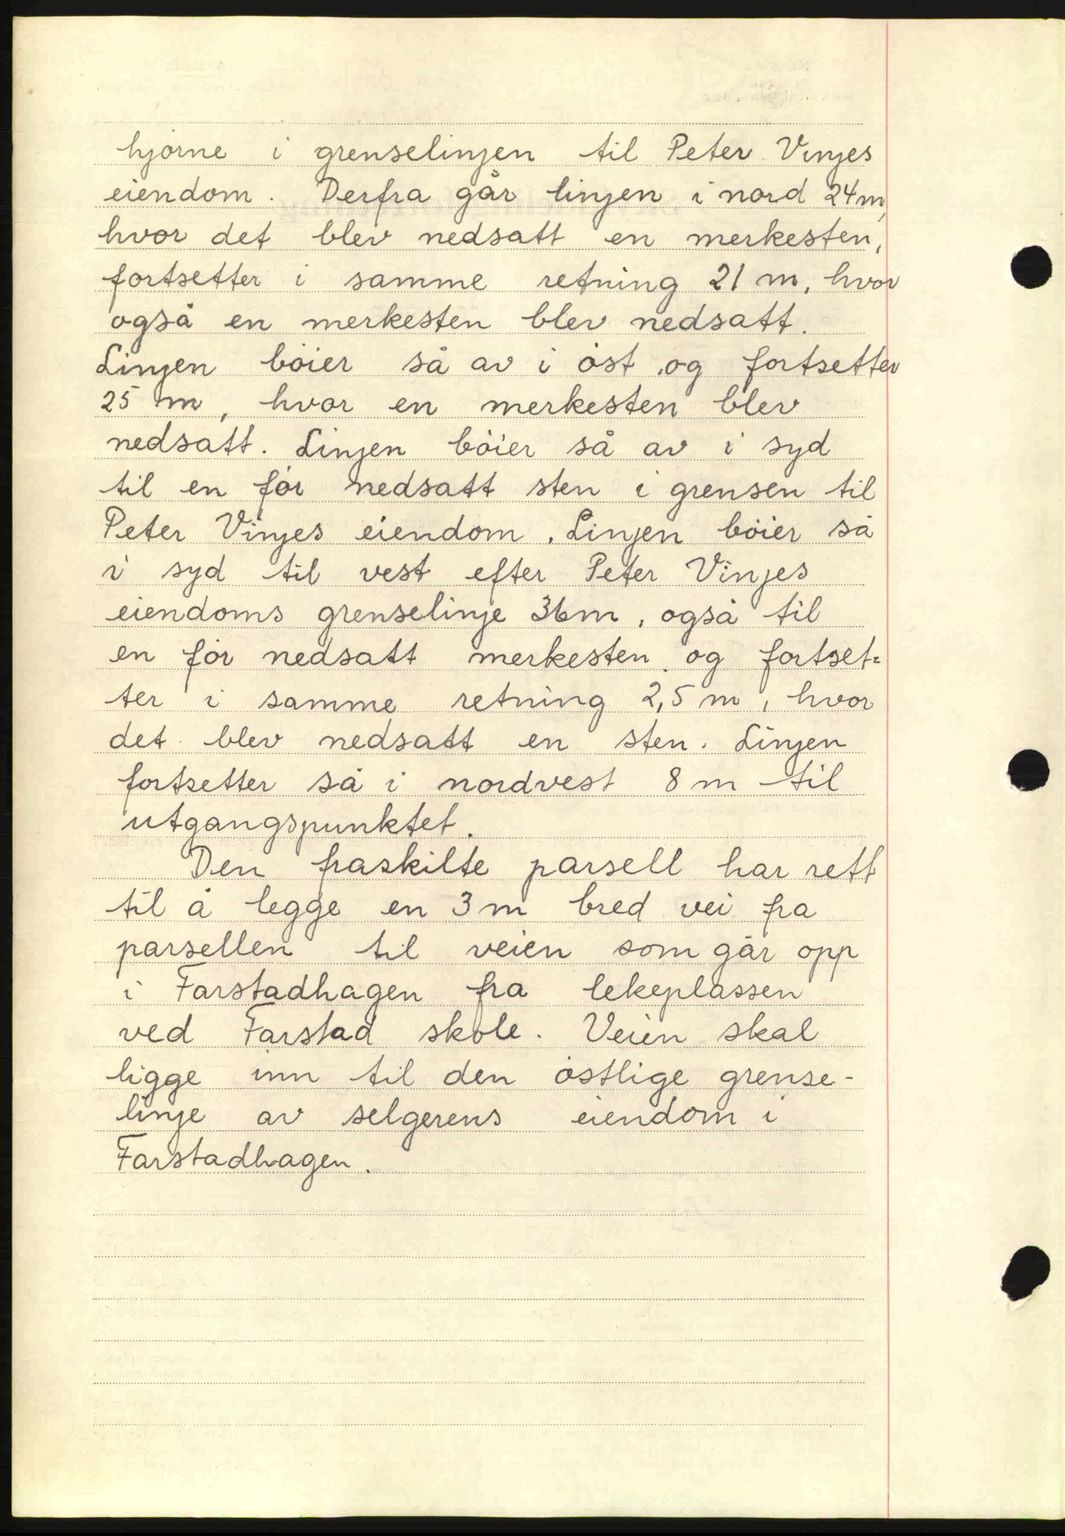 hjørne i grenselinjen til Peter Vinjes
eiendom. Derfra går linjen i nord 24 m,
hvor det blev nedsatt en merkesten,
fortsetter i samme retning 21 m, hvor
også en merkesten blev nedsatt.
Linjen bøier så av i øst og fortsetter
25 m, hvor en merkesten blev
nedsatt. Linjen bøier så av i syd
til en før nedsatt sten i grensen til
Peter Vinjes eiendom. Linjen bøier så
i syd til vest efter Peter Vinjes
eiendoms grenselinje 36 m, også til
en før nedsatt merkesten og fortset=
ter i samme retning 2,5 m, hvor
det blev nedsatt en sten. Linjen
fortsetter så i nordvest 8 m til
utgangspunktet.
Den fraskilte parsell har rett
til å legge en 3 m bred vei fra
parsellen til veien som går opp
i Farstadhagen fra lekeplassen
ved Farstad skole. Veien skal
ligge inn til den østlige grense-
linje av selgerens eiendom i
Farstadhagen.